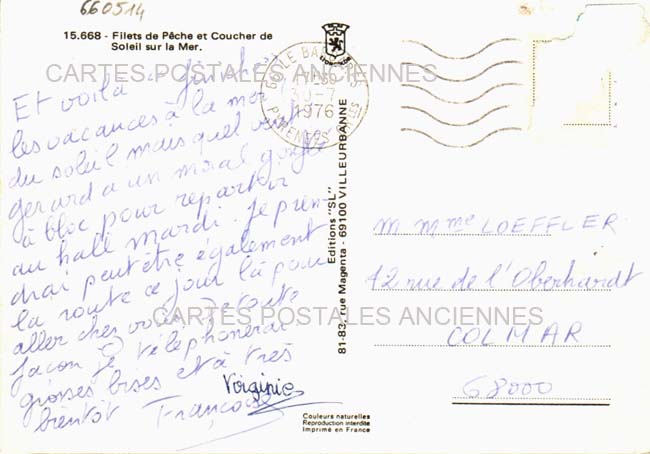 660514
15.668 - Filets de Pêche et Coucher de
Soleil sur la Mer.
CARTES POSTALES ANCIENNES
Et voilà
les vacances à la mer
du soleil mais quel vent
gerard a un moral gonflé
à bloc pour repartir
au hall mardi. Je pren-
drai peut être également
la route ce jour là pour
aller chez vous. De toute
façon je téléphonerai
grosses bises et à très
bientôt Françoise
Virginie
30-7
1976
LYON
Editions "SL"
81-83, rue Magenta - 69100 VILLEURBANNE
M Mme LOEFFLER
12 rue de l'Oberhardt
COLMAR
68000
CARTES POSTALES ANCIENNES
Couleurs naturelles
Reproduction interdite
Imprimé en France